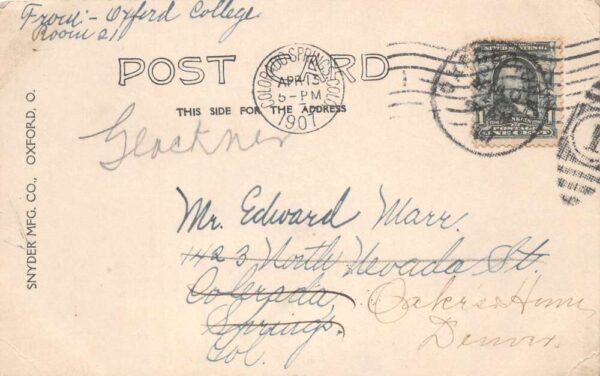 From:- Oxford College
Room 21
POST CARD
THIS SIDE FOR THE ADDRESS
COLORADO SPRINGS, COLO.
APR 13
5-PM
1907
POSTAGE
ONE CENT
Glockner
SNYDER MFG. CO., OXFORD, O.
Mr. Edward Marr.
1123 North Nevada St.
Colorado
Springs,
Col.
Oakes Home
Denver